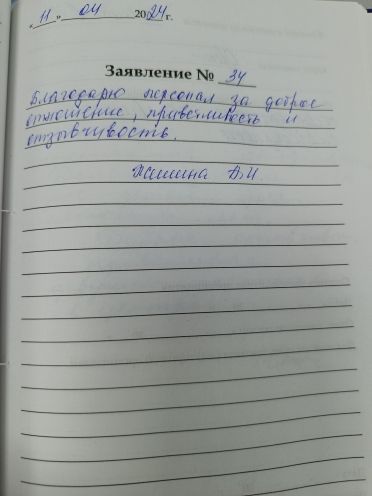 „11" 04 2024 г.
Заявление № 34
Благодарю персонал за доброе
отношение, приветливость и
отзывчивость.
А.И